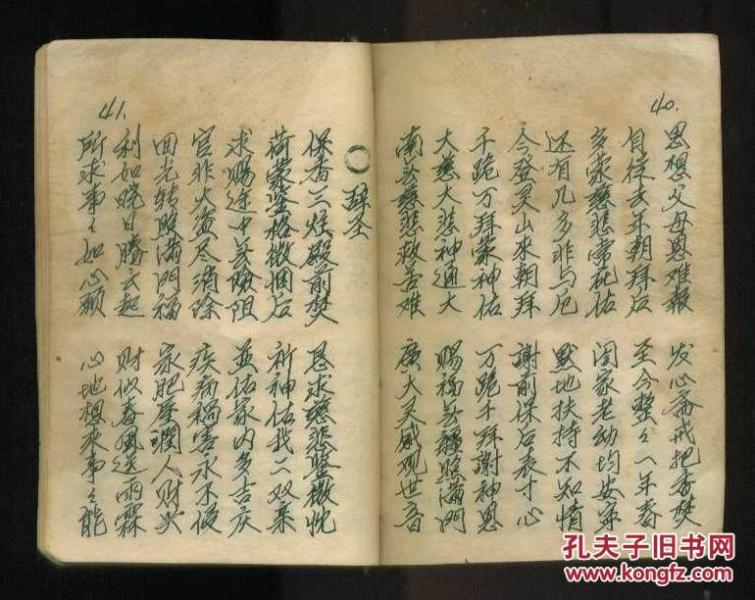 40.
思想父母恩难報 发心斋戒把香焚
自从去年朝拜后 至今整々一年春
多蒙慈悲常庇佑 阖家老幼均安宁
还有几多非与厄 默地扶持不知情
今登灵山来朝拜 謝前保后表寸心
千跪万拜蒙神佑 万跪千拜謝神恩
大慈大悲神通大 赐福無疆照满门
南無慈悲救苦难 廣大灵感观世音
41.
〇 辞圣
保香三炷殿前焚 恳求慈悲鉴微忱
荷蒙鉴格微悃后 祈神佑我二双亲
求赐途中無險阻 並佑家内多吉庆
官非火盗尽消除 疾病祸害永不侵
回光转照满门福 家肥屋潤人财兴
利如晓日腾云起 财似春風送雨霖
所求事々如心願 心地想来事々能
孔夫子旧书网
www.kongfz.com